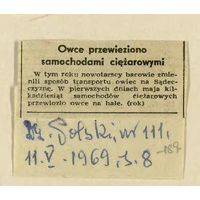 Owce przewieziono
samochodami ciężarowymi
W tym roku nowotarscy bacowie zmie-
nili sposób transportu owiec na Sądec-
czyznę. W pierwszych dniach maja kil-
kadziesiąt samochodów ciężarowych
przewiozło owce na hale. (rok)
Dz. Polski, nr 111,
11.V.-1969, s. 8
-189-